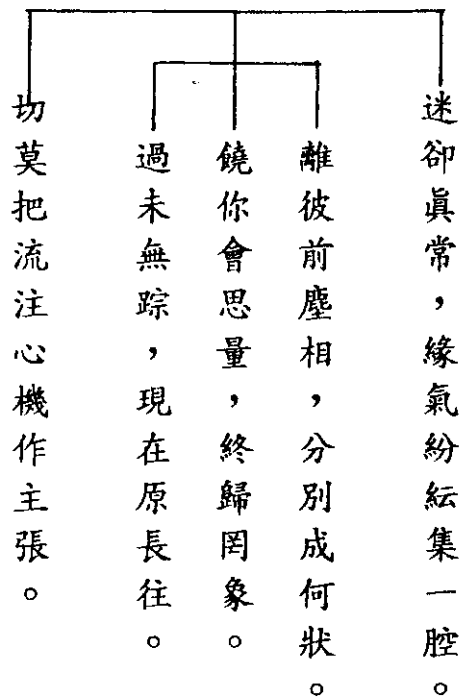 迷卻眞常，緣氣紛紜集一腔。
離彼前塵相，分別成何狀。
饒你會思量，終歸罔象。
過未無踪，現在原長往。
切莫把流注心機作主張。